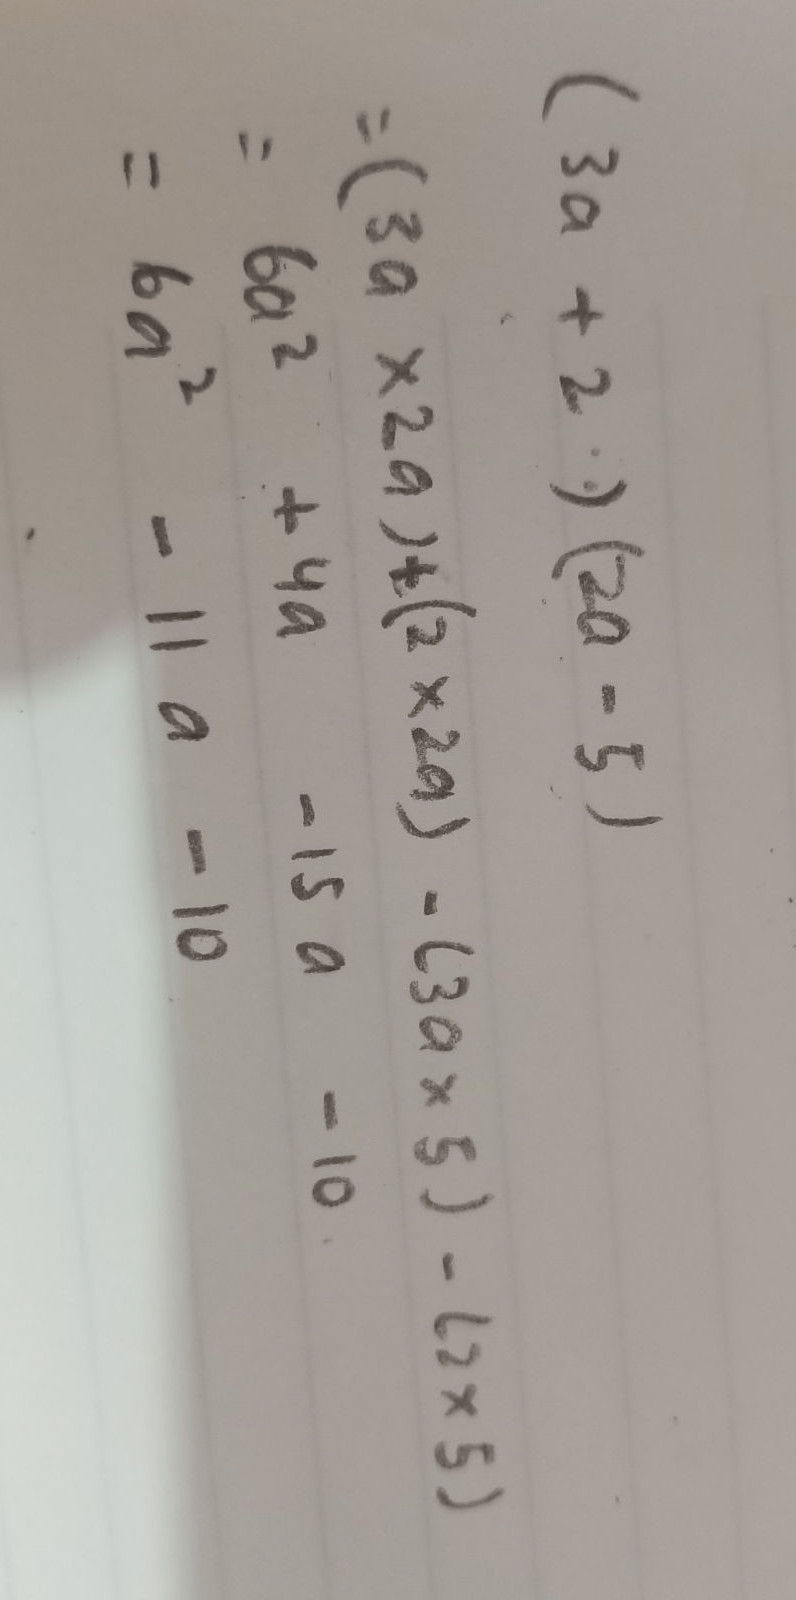 (3a + 2) (2a - 5)
= (3a × 2a) + (2 × 2a) - (3a × 5) - (2 × 5)
= 6a² + 4a - 15a - 10
= 6a² - 11a - 10